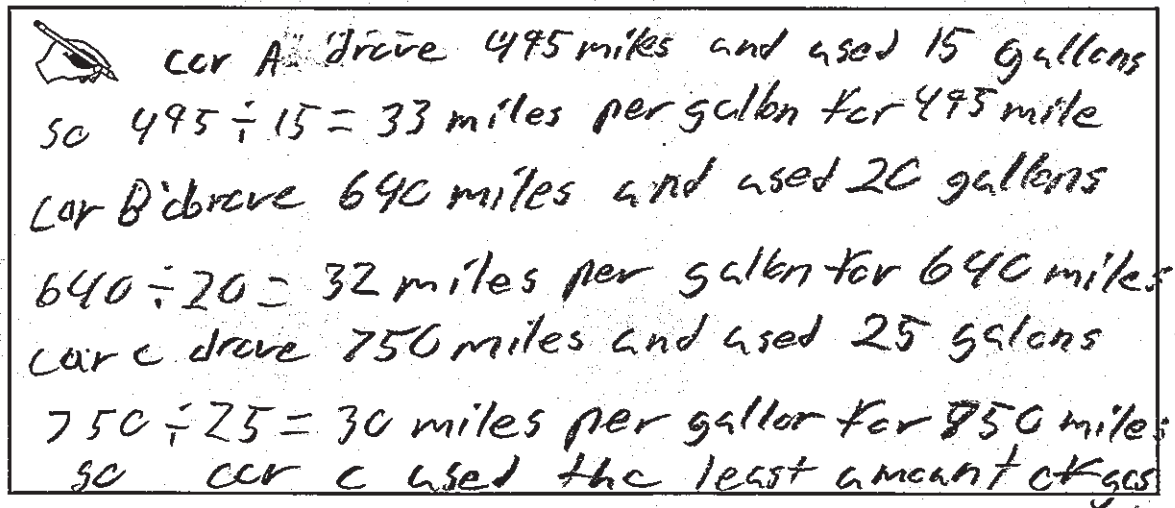 car A drove 495 miles and used 15 gallons
so 495 ÷ 15 = 33 miles per gallon for 495 mile
car B drove 640 miles and used 20 gallons
640 ÷ 20 = 32 miles per gallon for 640 miles
car c drove 750 miles and used 25 galons
750 ÷ 25 = 30 miles per gallor for 750 miles
so car c used the least amount of gas